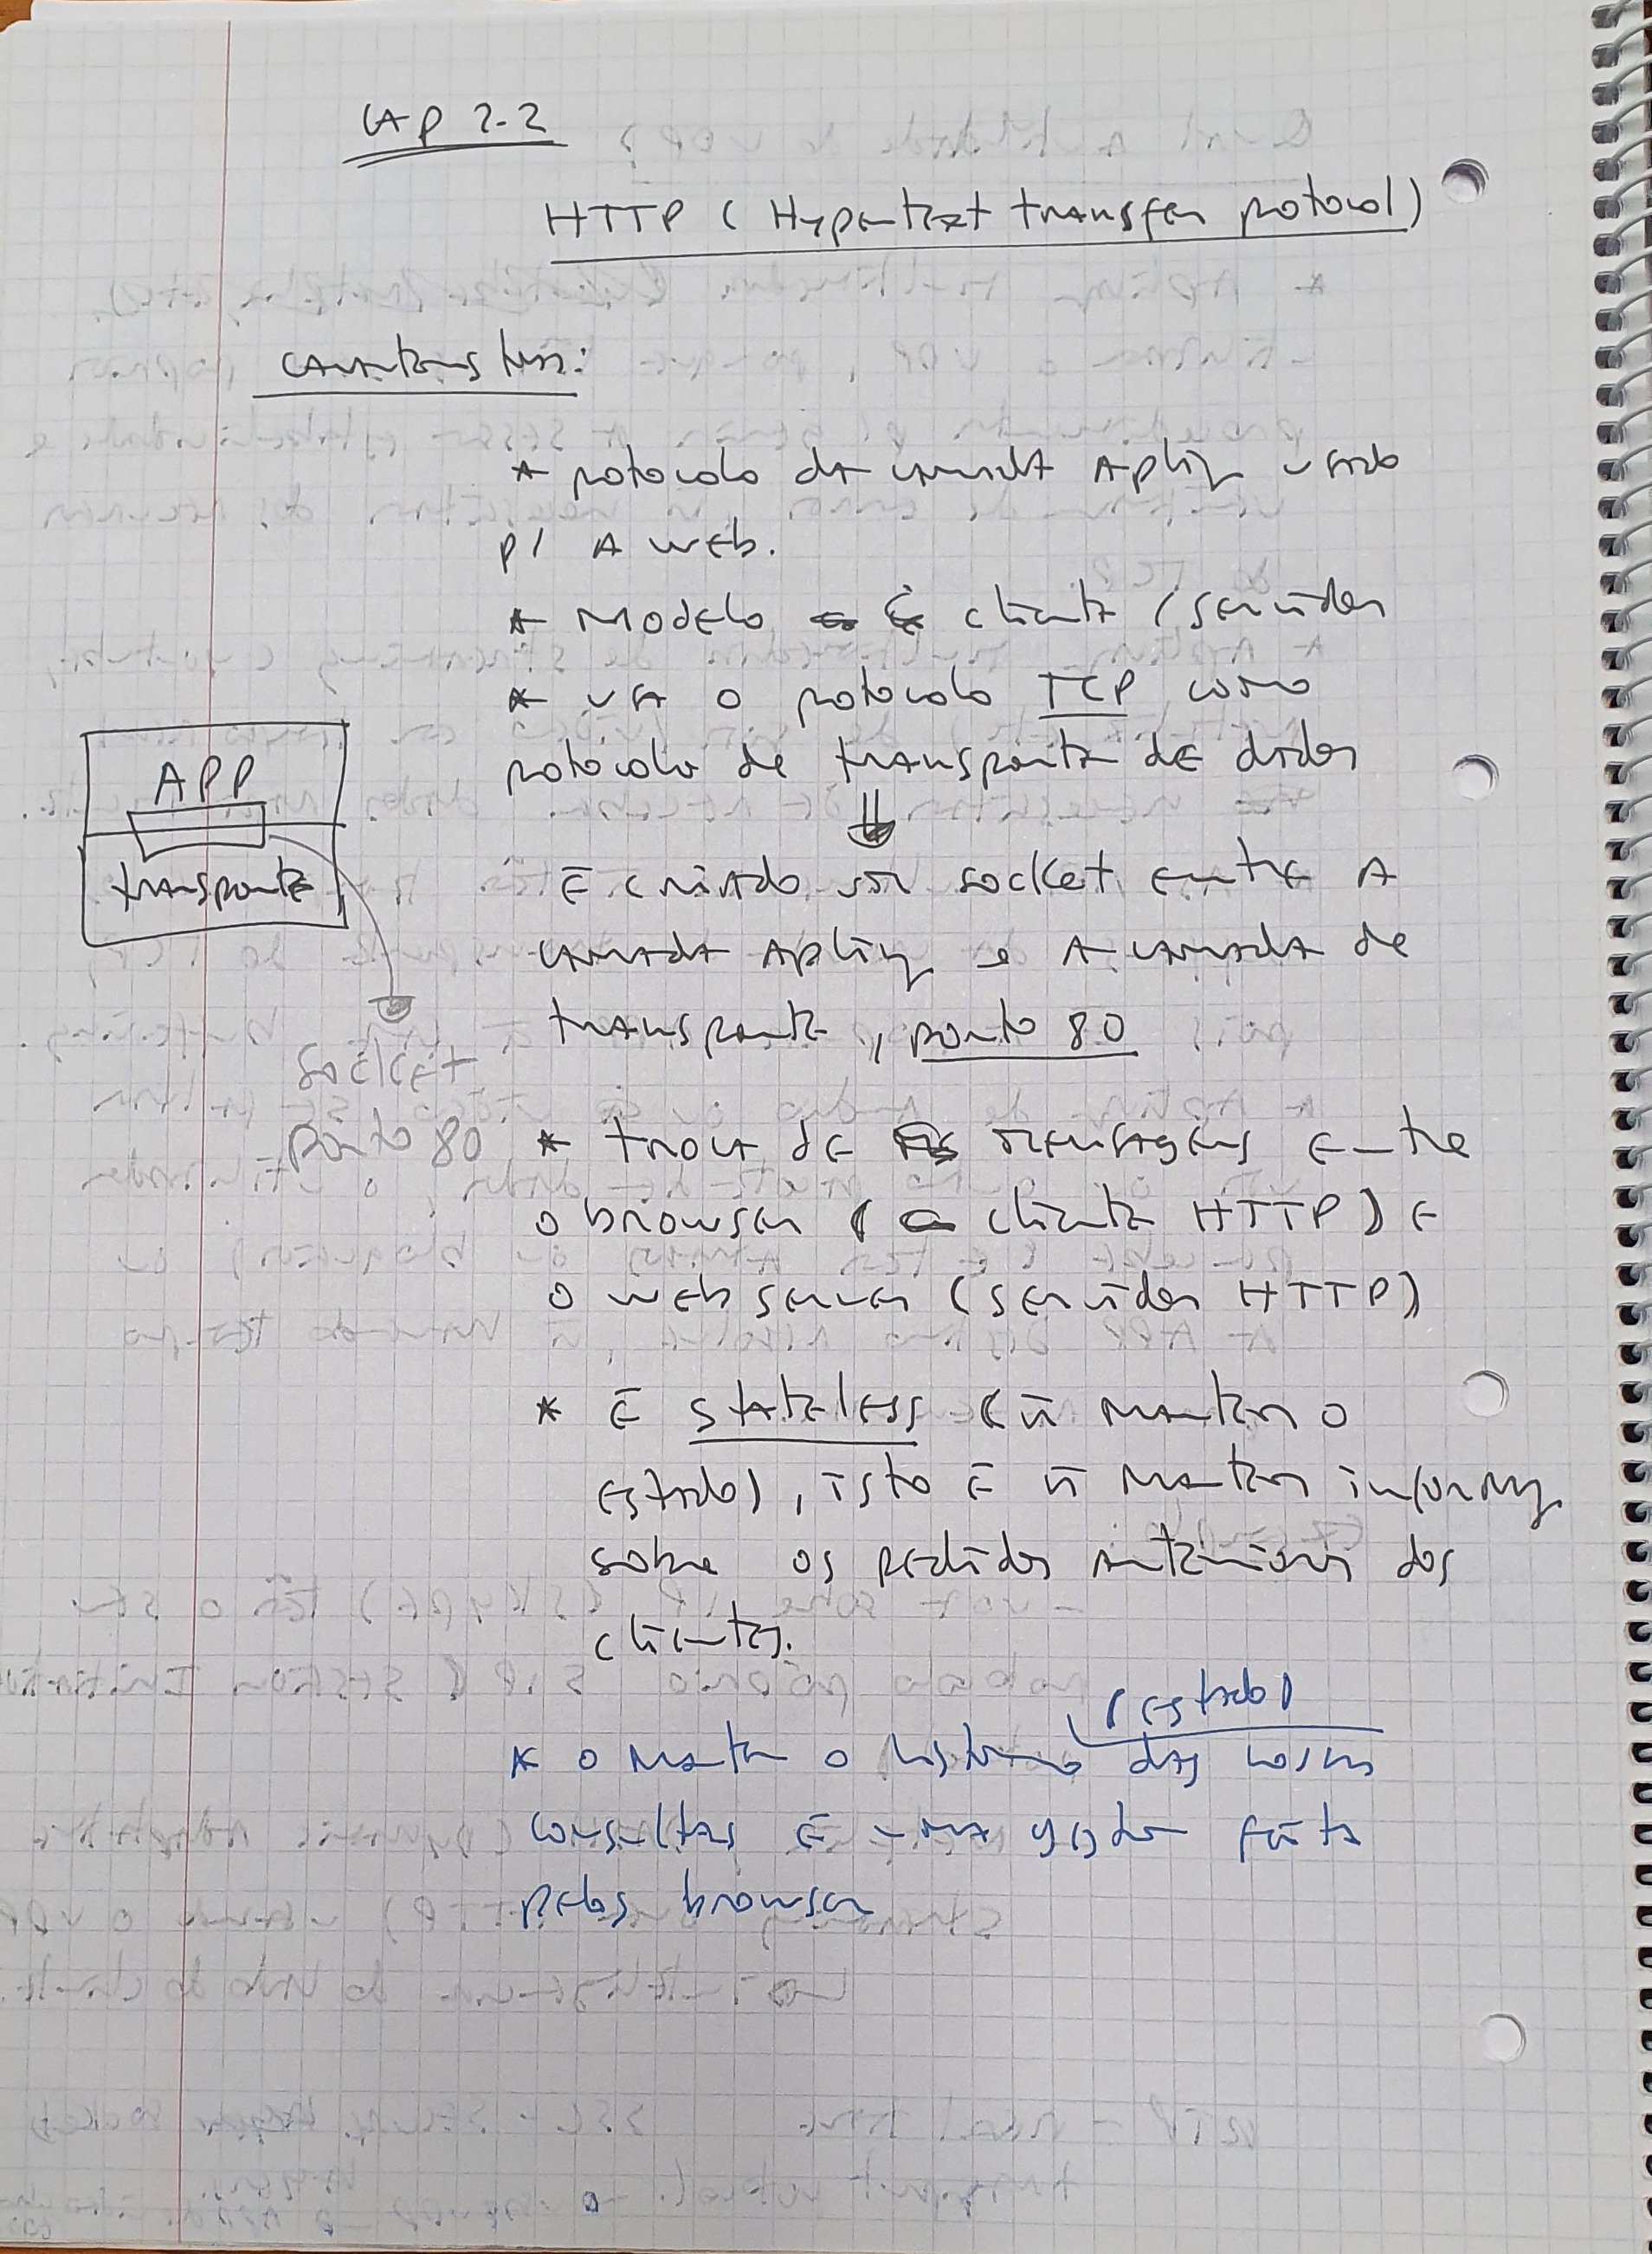 CAP 2.2
HTTP (Hypertext transfer protocol)
características:
* protocolo da camada Aplic. usado
p/ A web.
* Modelo cliente/servidor
* usa o protocolo TCP como
protocolo de transporte de dados
É criado um socket entre A
camada Aplic. e A camada de
transporte, porto 80
APP
transporte
socket
porto 80
* troca de mensagens entre
o browser (cliente HTTP) e
o web server (servidor HTTP)
* É stateless (ñ mantem o
estado), isto é ñ mantem inform.
sobre os pedidos anteriores dos
clientes.
(estado)
* o manter o histórico das nossas
consultas é uma gestão feita
pelos browser